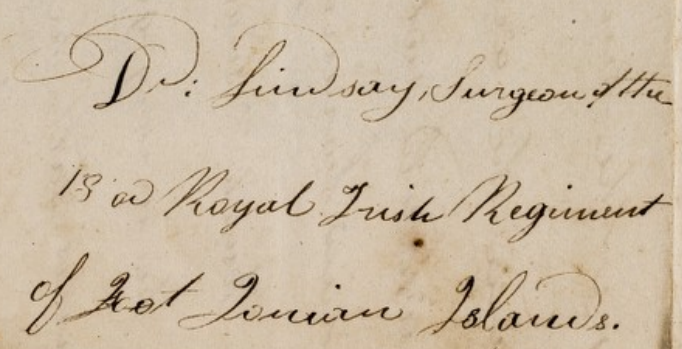 Dr: Lindsay, Surgeon of the
Royal Irish Regiment
of Foot Ionian Islands.